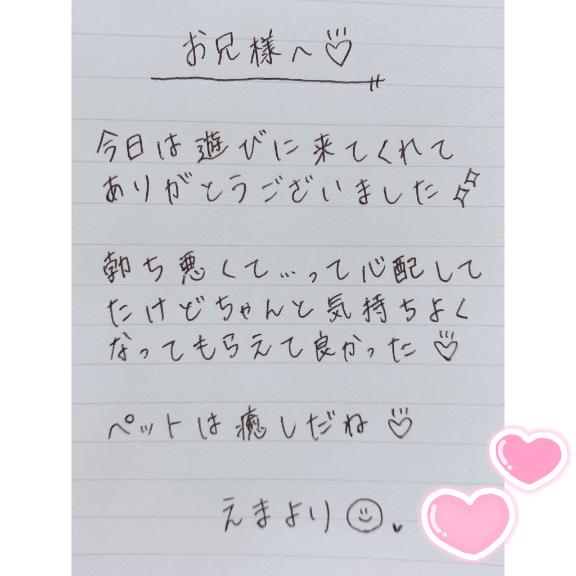 お兄様へ♡
今日は遊びに来てくれて
ありがとうございました
勃ち悪くて...って心配して
たけどちゃんと気持ちよく
なってもらえて良かった♡
ペットは癒しだね♡
えまより